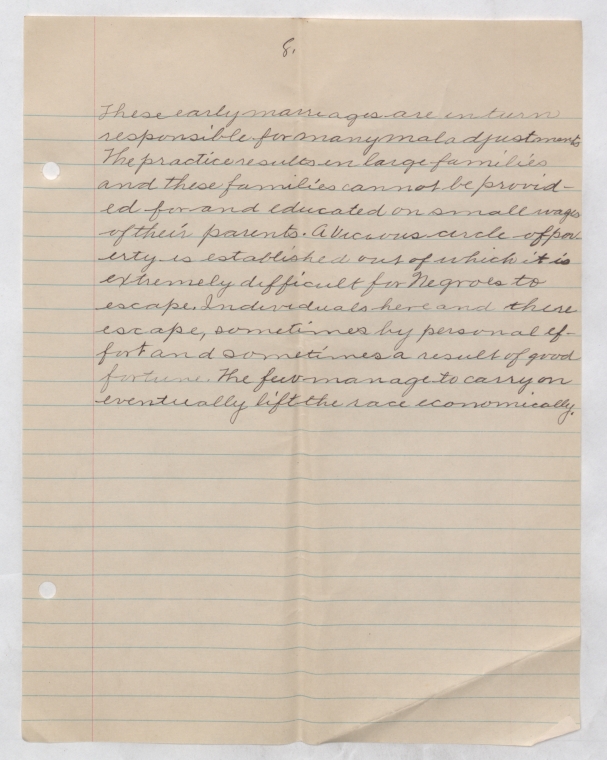 8.
These early marriages are in turn
responsible for many maladjustments
The practice results in large families
and these families cannot be provid-
ed for and educated on small wages
of their parents. A vicious circle of pov
erty is established out of which it is
extremely difficult for Negroes to
escape. Individuals here and there
escape, sometimes by personal ef-
fort and sometimes a result of good
fortune. The few manage to carry on
eventually lift the race economically.